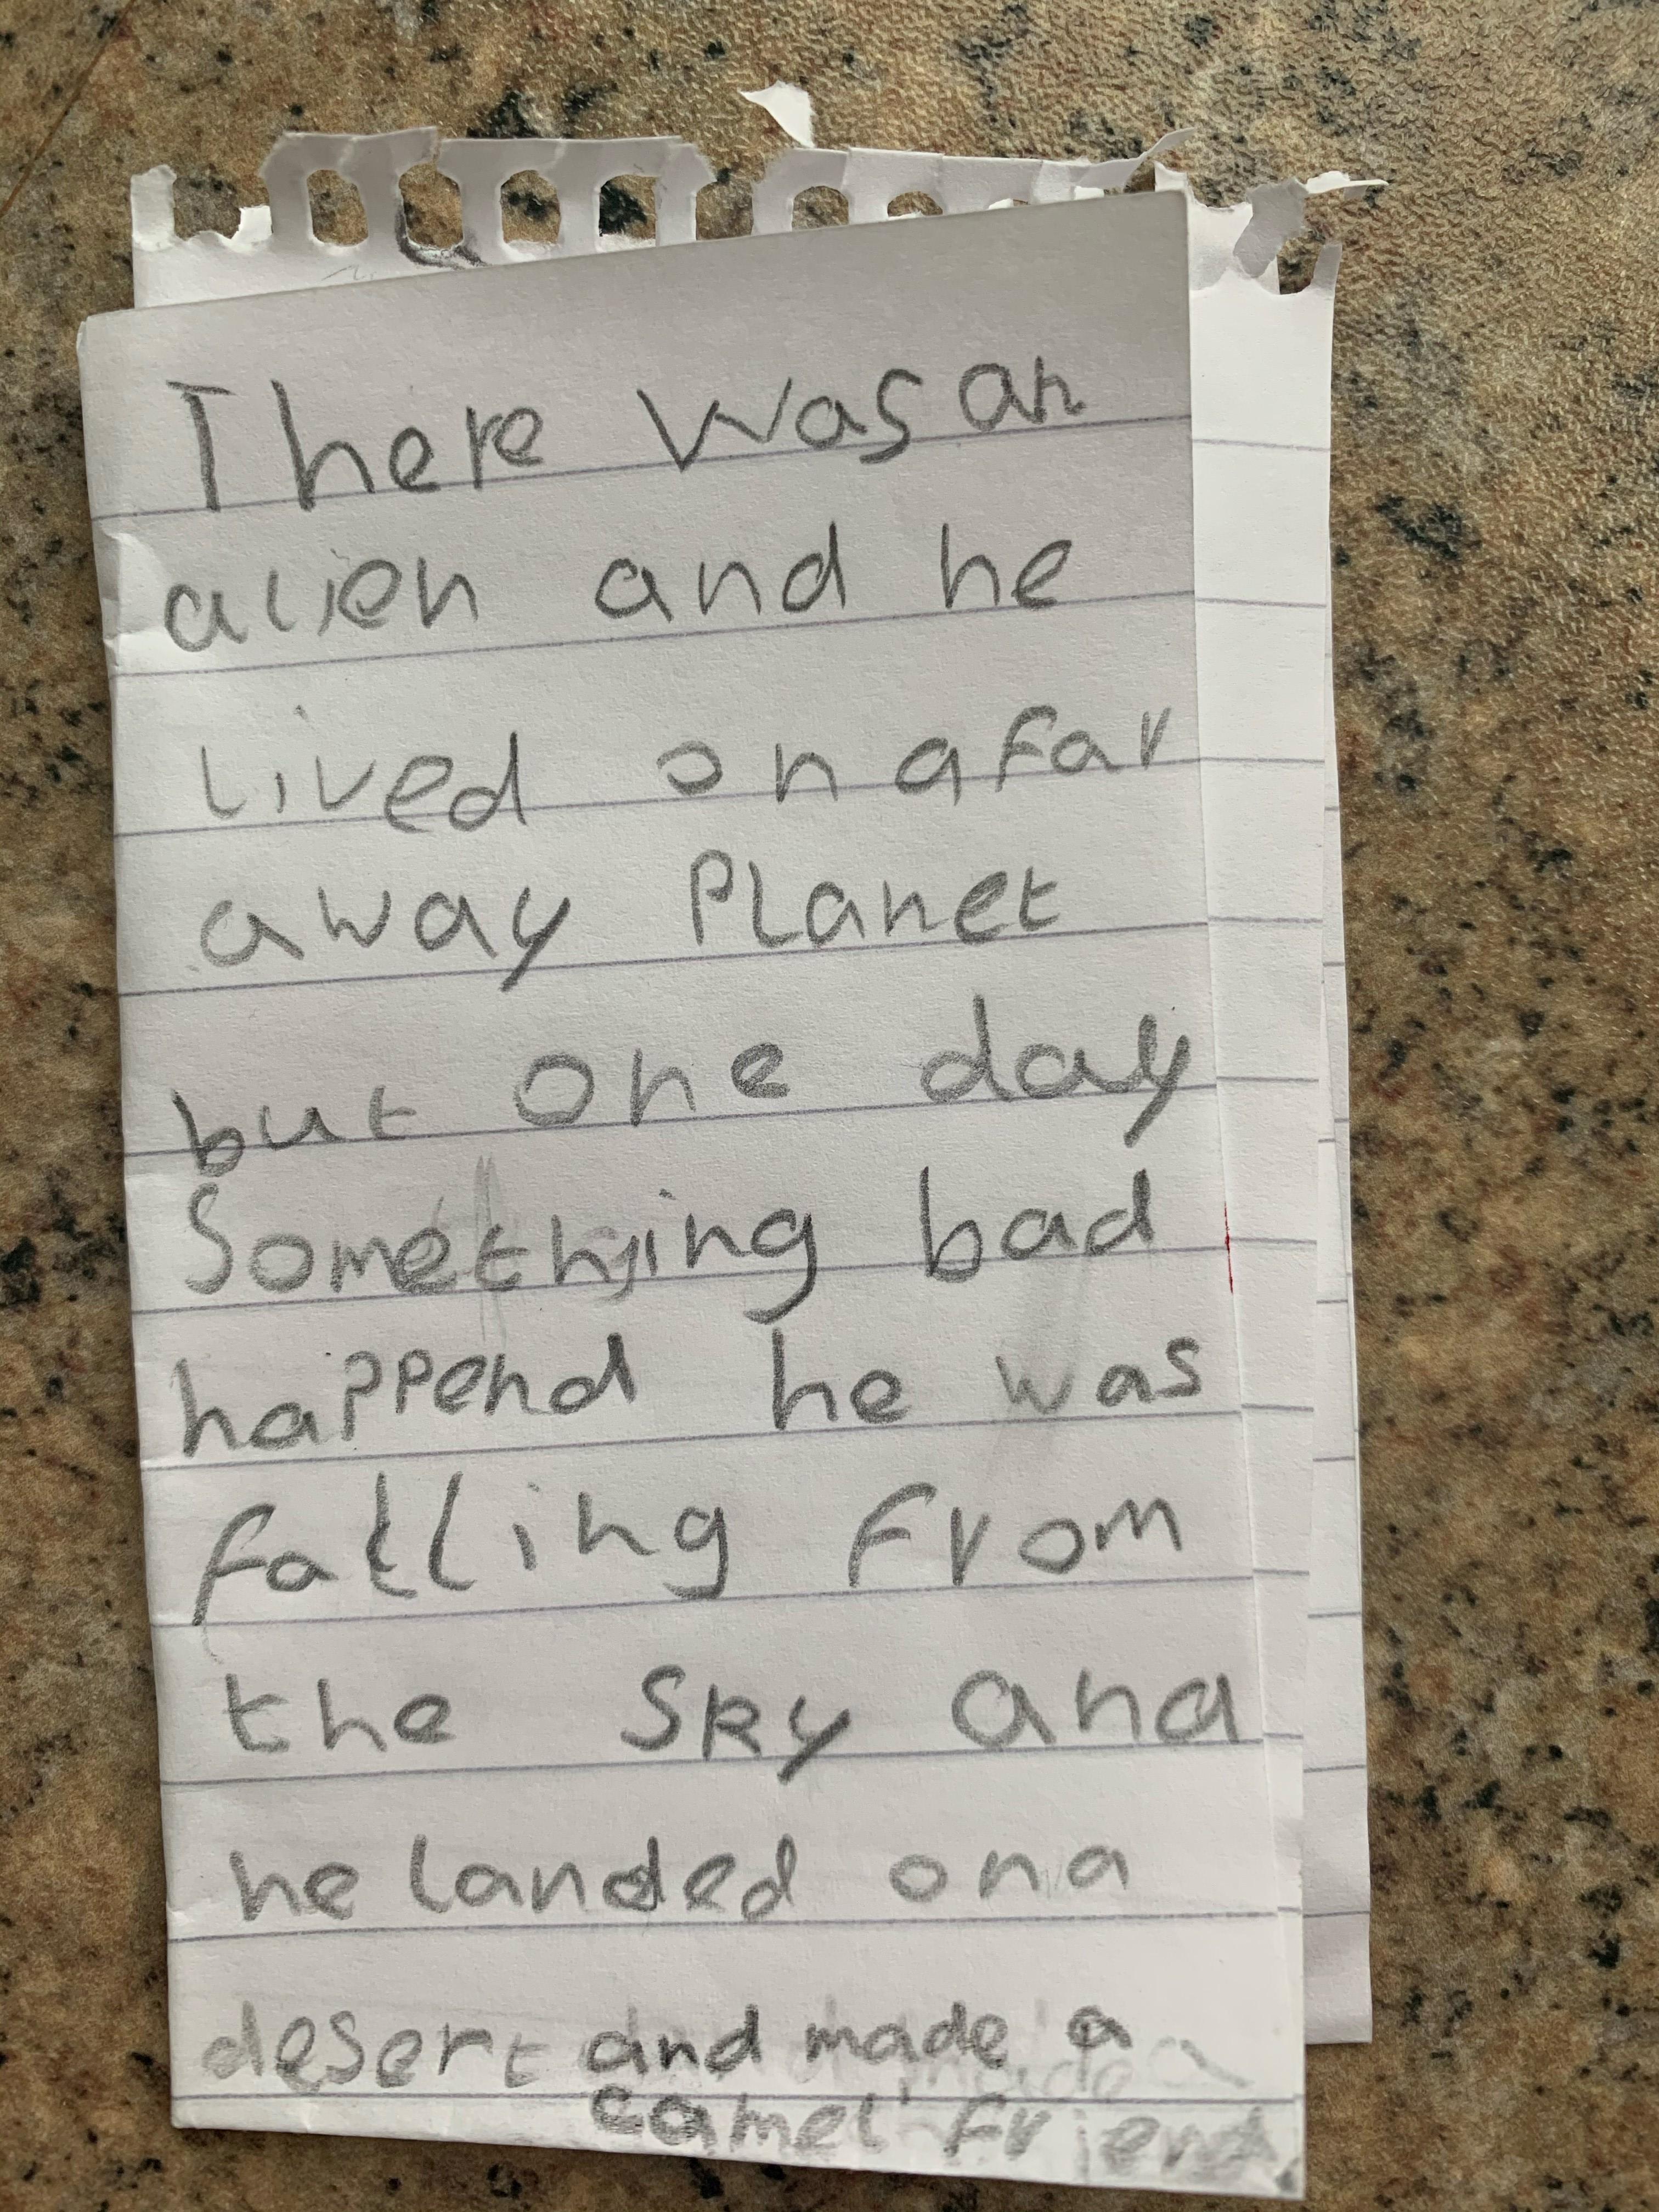 There was an
alien and he
lived on a far
away Planet
but one day
Something bad
happend he was
falling from
the sky and
he landed on a
desert and made a
camel friend